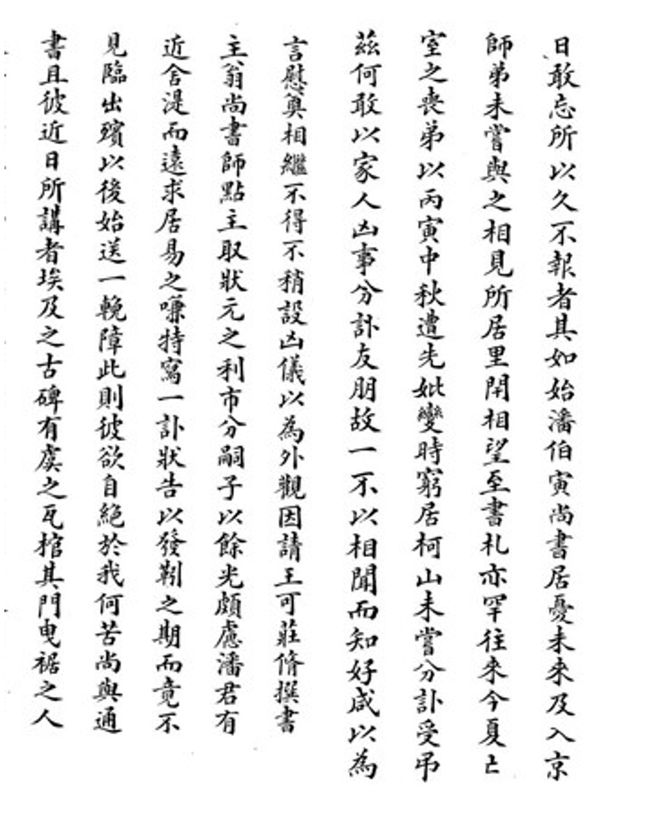 日敢忘所以久不報者其如始潘伯寅尚書居憂未來及入京
師弟未嘗與之相見所居里閈相望至書札亦罕往來今夏亡
室之喪弟以丙寅中秋遭先妣變時窮居柯山未嘗分訃受弔
茲何敢以家人凶事分訃友朋故一不以相聞而知好咸以為
言慰奠相繼不得不稍設凶儀以為外觀因請王可莊脩撰書
主翁尚書師點主取狀元之利市分嗣子以餘光頗慮潘君有
近舍湜而遠求居易之嗛特寫一訃狀告以發靷之期而竟不
見臨出殯以後始送一輓障此則彼欲自絕於我何苦尚與通
書且彼近日所講者埃及之古碑有虞之瓦棺其門曳裾之人